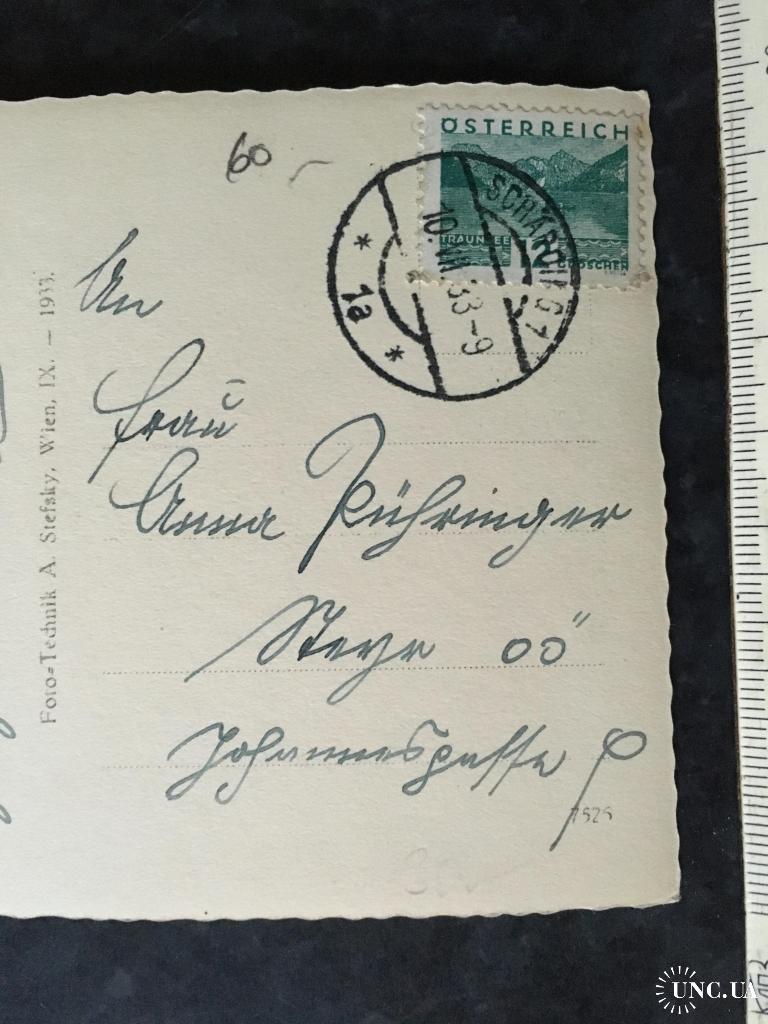 60
ÖSTERREICH
TRAUNSEE
12 GROSCHEN
SCHÄRDING 1
10. VII. 33-9
* 1a *
An
Frau
Anna Pühringer
Steyr OÖ
Johannesgasse 9
7525
Foto-Technik A. Stefsky, Wien, IX. — 1933.
UNC.UA